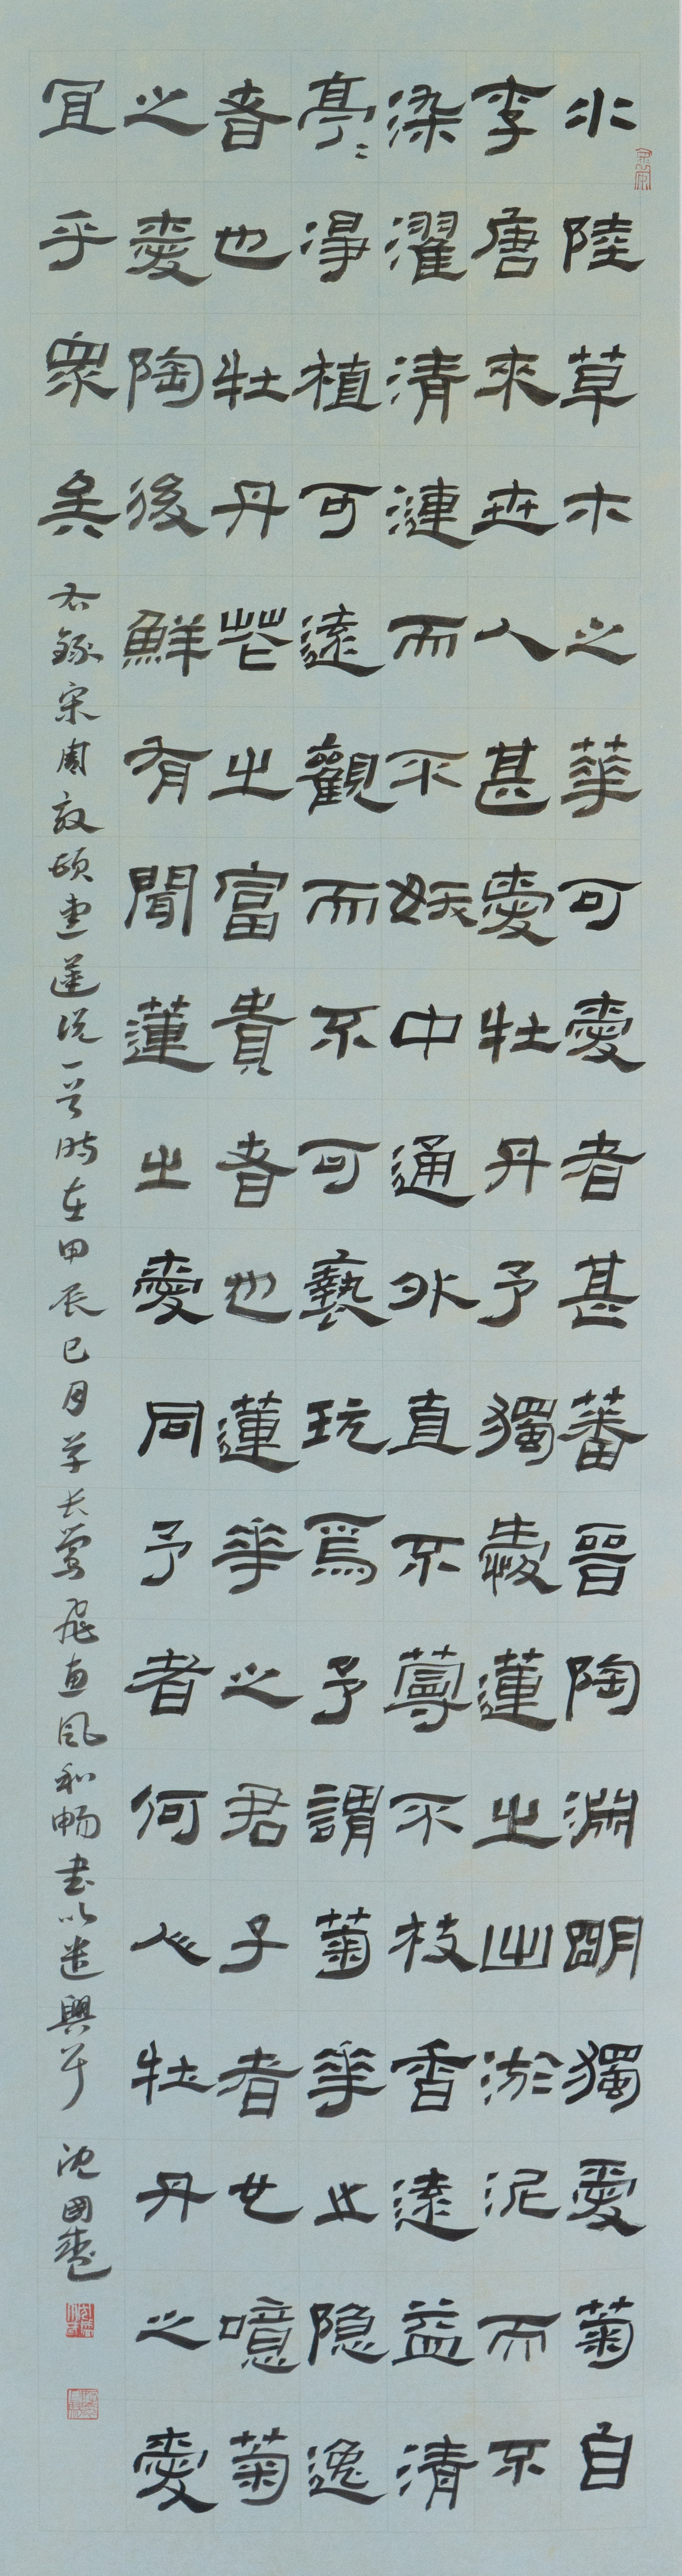 水陸草木之華可愛者甚蕃晉陶淵明獨愛菊自
李唐來世人甚愛牡丹予獨愛蓮之出淤泥而不
染濯清漣而不妖中通外直不蔓不枝香遠益清
亭〻淨植可遠觀而不可褻玩焉予謂菊華之隐逸
者也牡丹花之富貴者也蓮華之君子者也噫菊
之愛陶後鮮有聞蓮之愛同予者何人牡丹之愛
宜乎衆矣
右錄宋周敦頤愛蓮说一首時在甲辰巳月草长鶯飛惠風和畅書以遣興耳
沈國